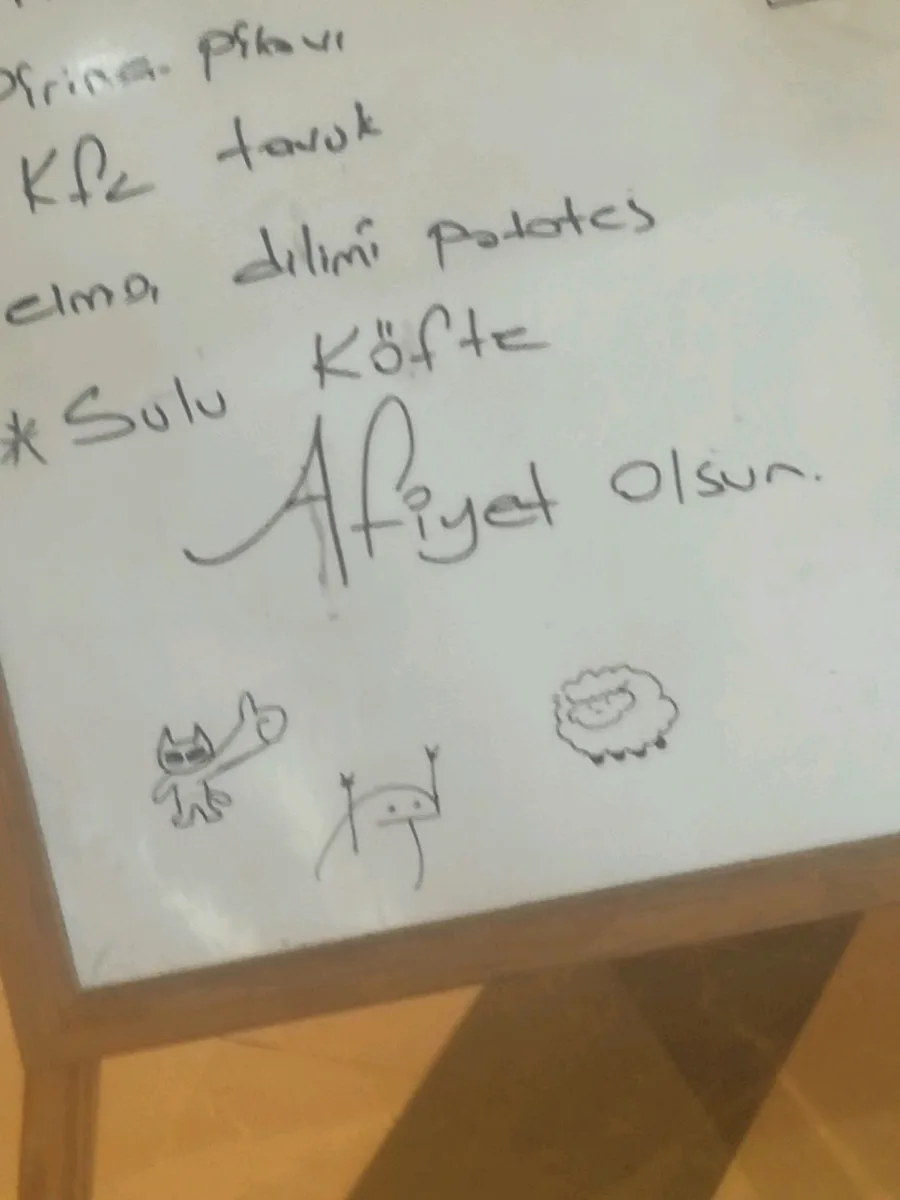 Pirinç pilavı
Kfc tavuk
elma dilimi patates
* Sulu Köfte
Afiyet Olsun.